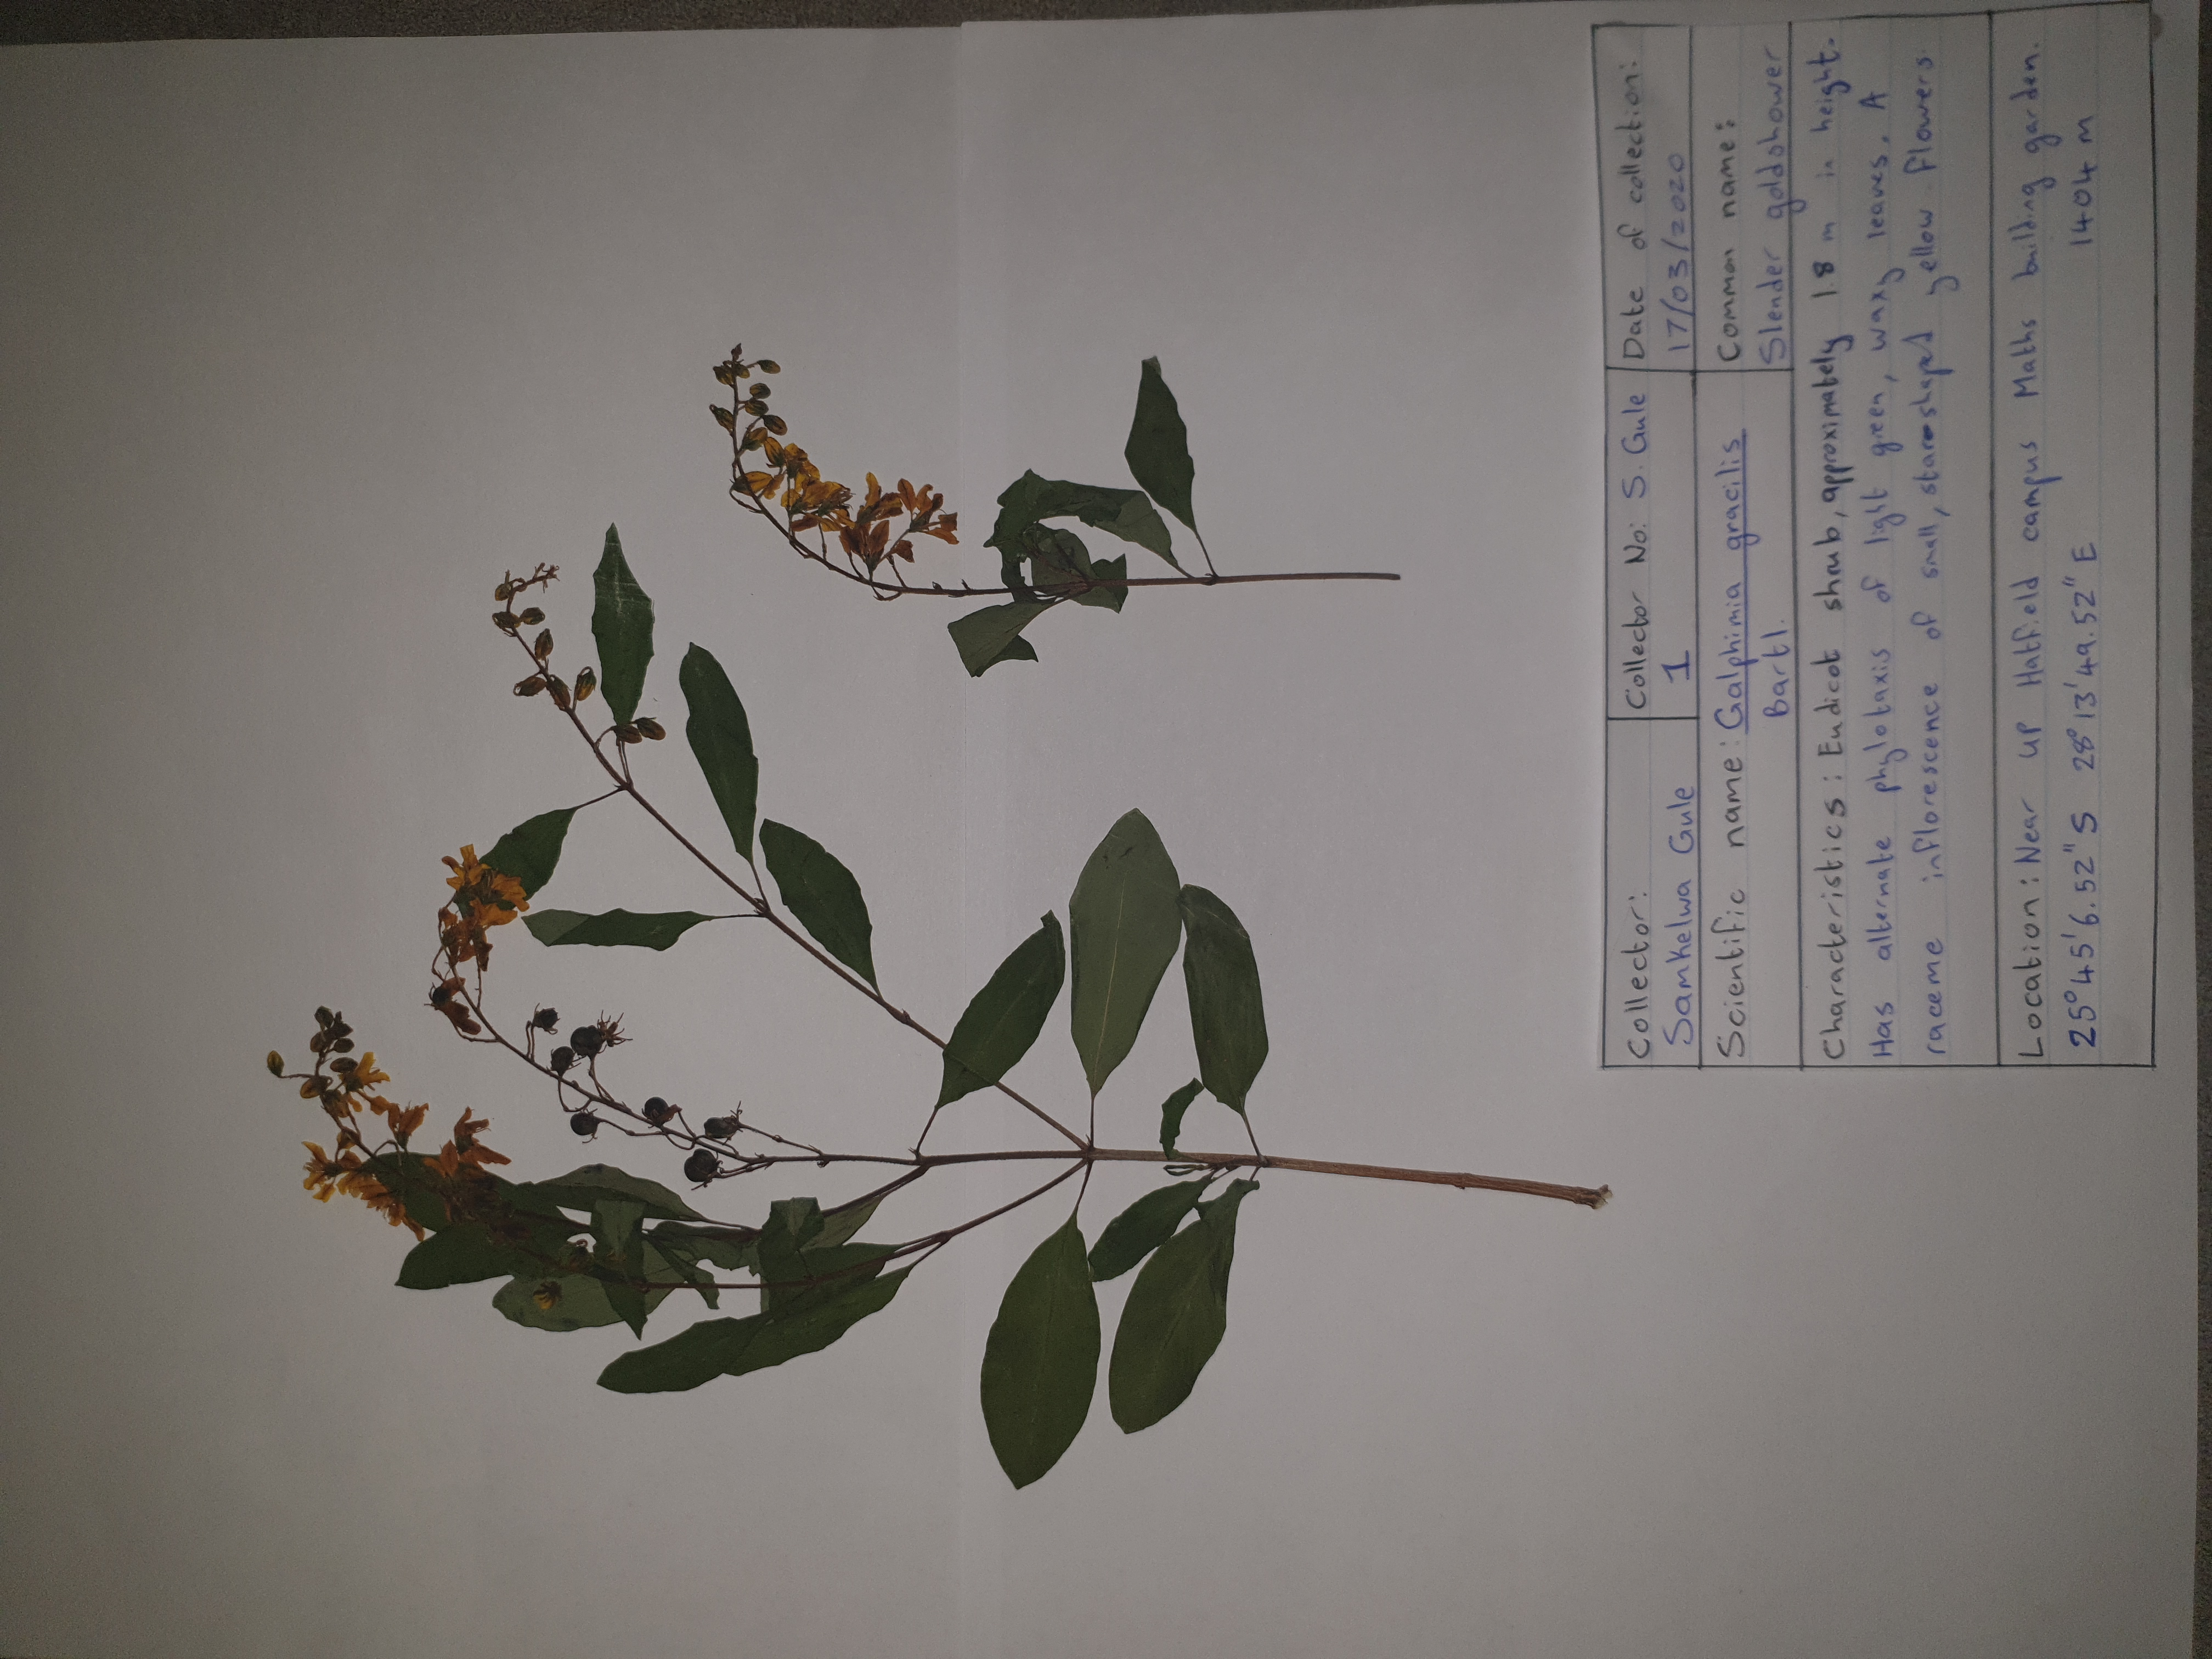 Collector: Collector No: S. Gule Date of collection:
Samkelwa Gule 1 17/03/2020
Scientific name: Galphimia gracilis Common name:
Bartl. Slender goldshower
Characteristics: Eudicot shrub, approximately 1.8 m in height.
Has alternate phylotaxis of light green, waxy leaves. A
raceme inflorescence of small, star-shaped yellow flowers
Location: Near UP Hatfield campus Maths building garden.
25°45'6.52" S 28°13'49.52" E 1404 m